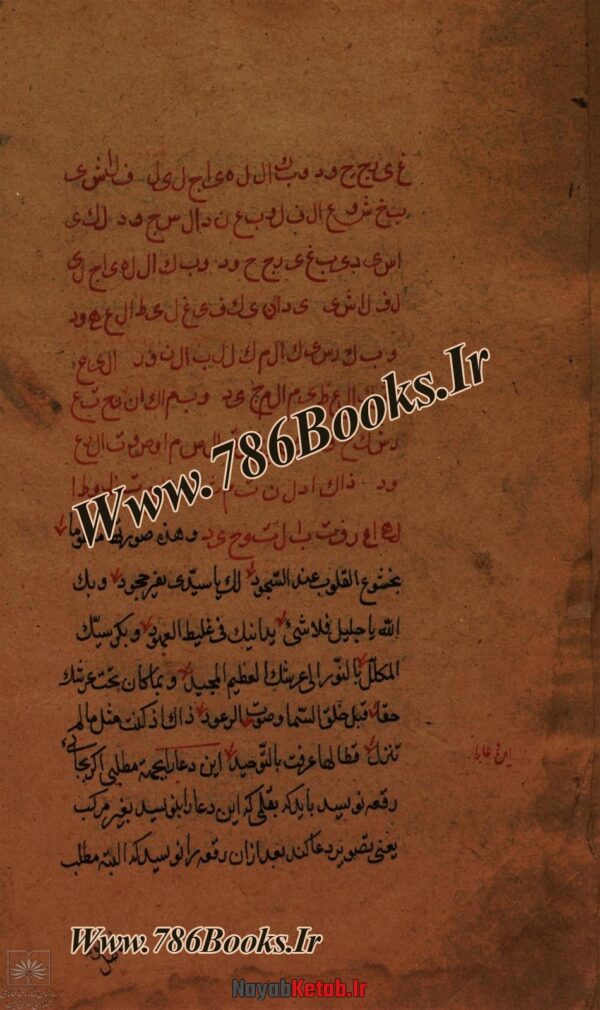 غ ی ر ج ح و د و ب ك ا ل ل ه ی ا ج ل ی ل ف ل ا ش ی
ب خ ش و ع ا ل ق ل و ب ع ن د ا ل س ج و د ل ك ی
ا س ی د ی ب غ ی ر ج ح و د و ب ك ا ل ل ه ی ا ج ل ی
ل ف ل ا ش ی ی د ا ن ی ك ف ی غ ل ی ظ ا ل ع ه و د
و ب ك ر س ی ك ا ل م ك ل ل ب ا ل ن و ر ا ل ی ع
ا ل ع ظ ی م ا ل م ج ی د و ب م ا ك ا ن ت ح ت ع
ر ش ك ح ا ل س م ا و ص و ت ا ل ر ع
و د ذ ا ك ا ذ ك ن ت م
ل ه ا ع ر ف ت ب ا ل ت و ح ی د و هذه صورتها
بخشوع القلوب عند السجود لك یا سیدی بغیر جحود و بك
الله یا جلیل فلا شئ یدانیك فی غلیظ العهود و بكرسیك
المكلل بالنور الی عرشك العظیم المجید و بما كان تحت عرشك
حقا قبل خلق السما و صوت الرعود ذاك اذ كنت مثل ما لم
تزل قط الها عرفت بالتوحید این دعا را بجهة مطلبی اكر بجائی
رقعه نویسید باید كه بقلمی كه این دعا را بنویسید بغیر مركب
یعنی تصویر دعا كند بعد ازان رقعه را نویسید كه البته مطلب
Www.786Books.Ir
Www.786Books.Ir
NayabKetab.Ir